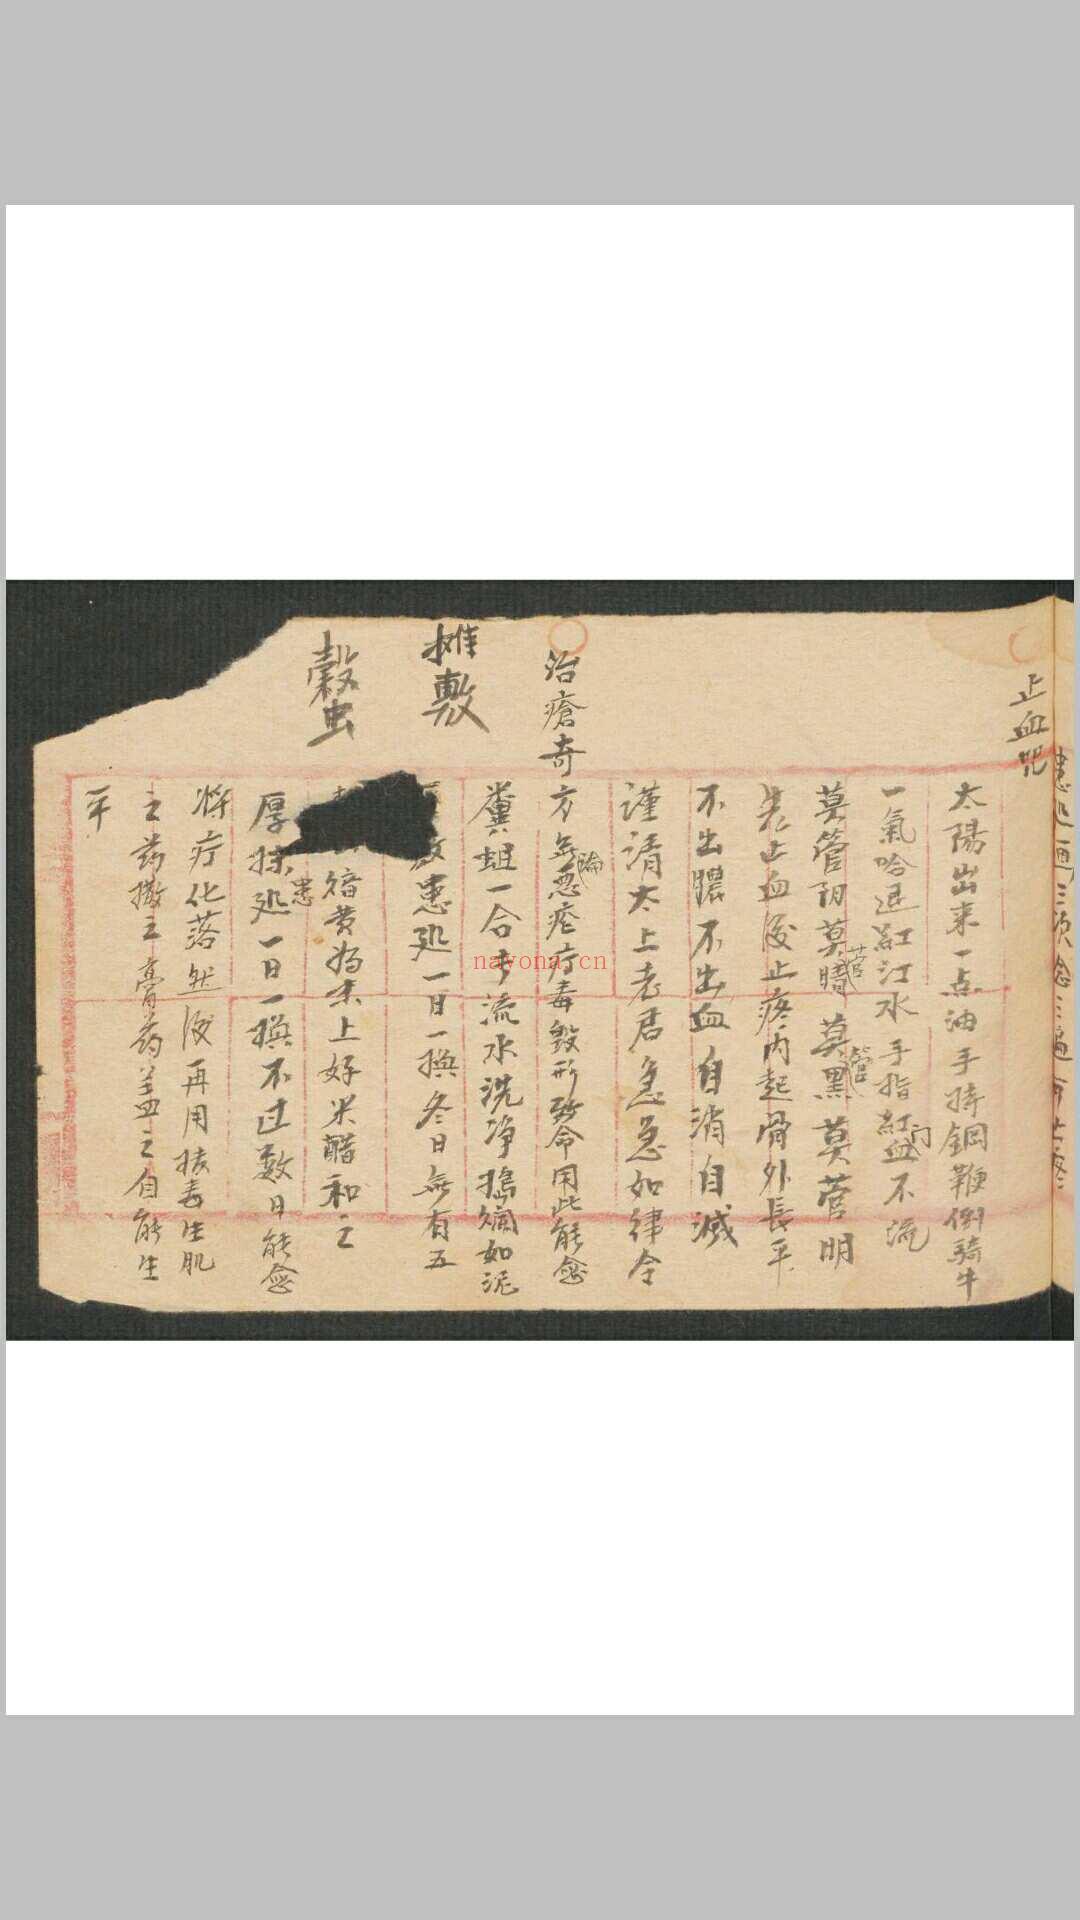 止血咒
太陽出来一点油手持鋼鞭倒騎牛
一氣哈退紅江水手指紅门血不流
莫管阴莫管晴莫管黑莫管明
先止血後止疼内起骨外長平
不出膿不出血自消自滅
謹清太上老君急急如律令
治瘡奇
方無論惡疮疔毒毀形致命用此能愈
糞蛆一合長流水洗净搗爛如泥
攤敷
敷患処一日一换冬日無有五
榖虫
黄為末上好米醋和之
厚抹患処一日一换不过数日能愈
将疔化落然後再用拔毒生肌
之药撒之膏药盖之自能生
平
nayona.cn